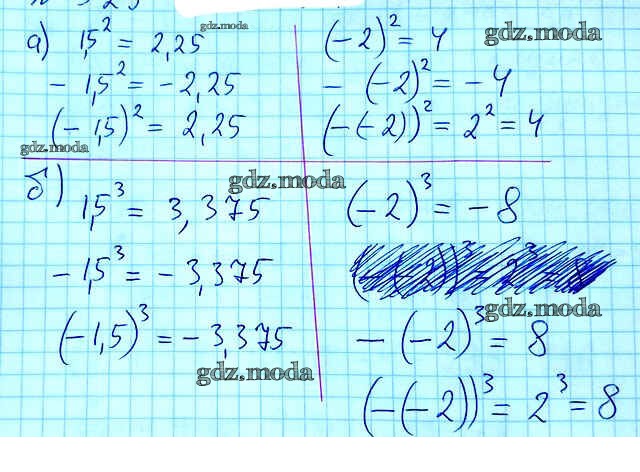 а) 1,5² = 2,25
- 1,5² = - 2,25
(- 1,5)² = 2,25
(-2)² = 4
- (-2)² = - 4
(-(-2))² = 2² = 4
б)
1,5³ = 3,375
- 1,5³ = - 3,375
(-1,5)³ = - 3,375
(-2)³ = - 8
- (-2)³ = 8
(-(-2))³ = 2³ = 8
gdz.moda
gdz.moda
gdz.moda
gdz.moda
gdz.moda
gdz.moda